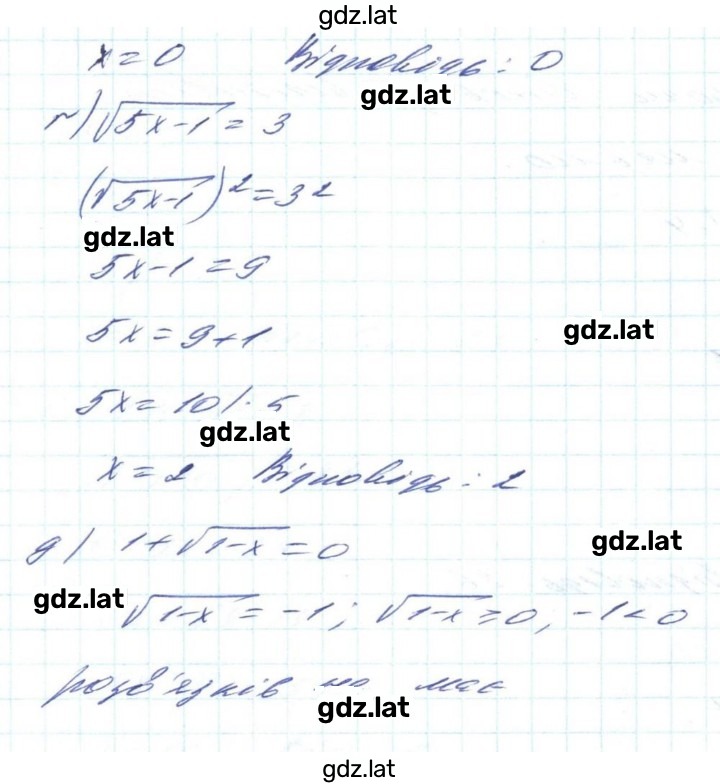 gdz.lat
x = 0 Відповідь: 0
gdz.lat
г) √(5x-1) = 3
(√(5x-1))² = 3²
gdz.lat
5x-1 = 9
5x = 9+1
gdz.lat
5x = 10 /: 5
gdz.lat
x = 2 Відповідь: 2
g) 1+√(1-x) = 0
gdz.lat
gdz.lat
√(1-x) = -1; √(1-x) ≥ 0, -1 < 0
розв'язків не має
gdz.lat
gdz.lat